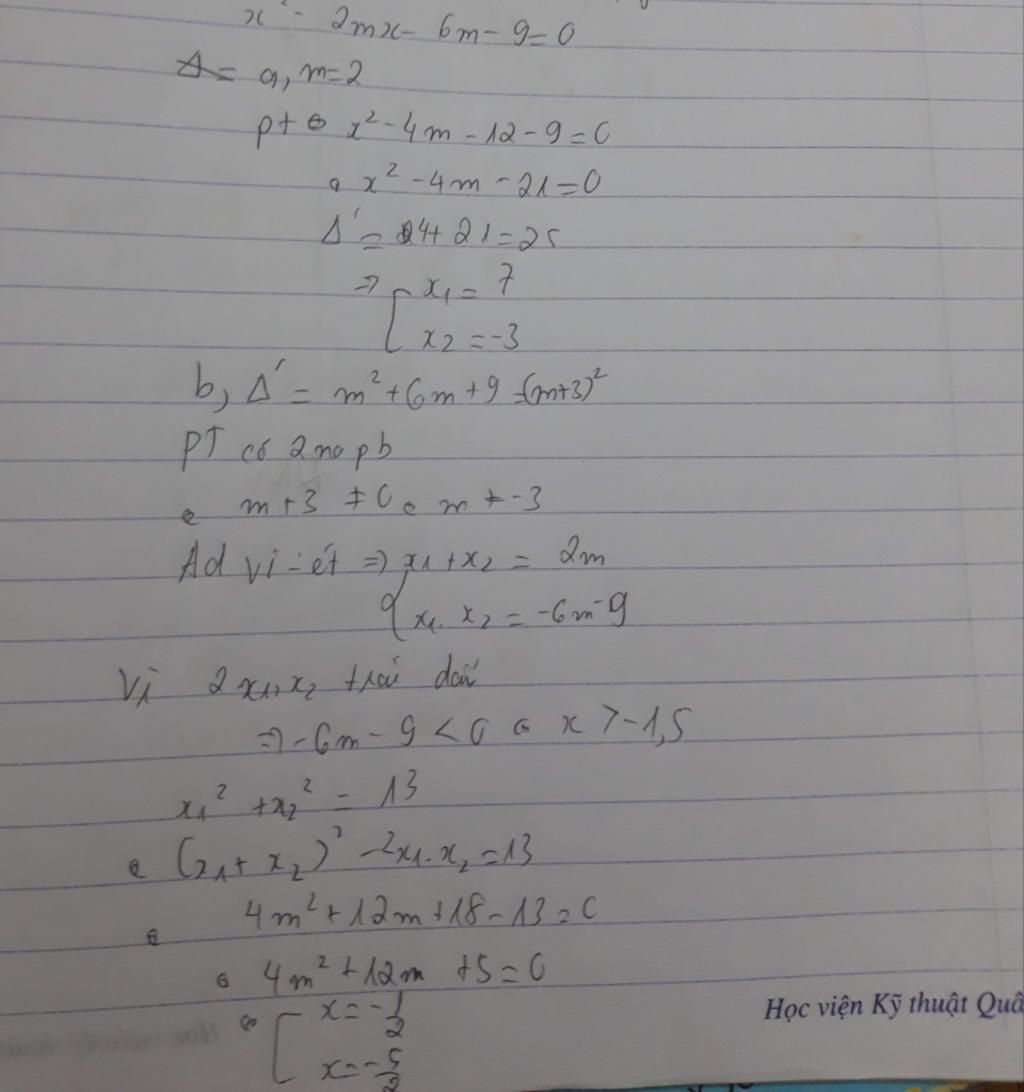 x² - 2mx - 6m - 9 = 0
a, m = 2
pt ⇔ x² - 4m - 12 - 9 = 0
⇔ x² - 4m - 21 = 0
Δ' = 4 + 21 = 25
⇒ [ x₁ = 7
x₂ = -3
b, Δ' = m² + 6m + 9 = (m+3)²
PT có 2 no pb
⇔ m + 3 ≠ 0 ⇔ m ≠ -3
Ad vi-ét ⇒ { x₁ + x₂ = 2m
x₁. x₂ = -6m - 9
Vì 2 x₁, x₂ trái dấu
⇒ -6m - 9 < 0 ⇔ x > -1,5
x₁² + x₂² = 13
⇔ (x₁ + x₂)² - 2x₁. x₂ = 13
⇔ 4m² + 12m + 18 - 13 = 0
⇔ 4m² + 12m + 5 = 0
⇔ [ x = -1/2
x = -5/2
Học viện Kỹ thuật Quâ